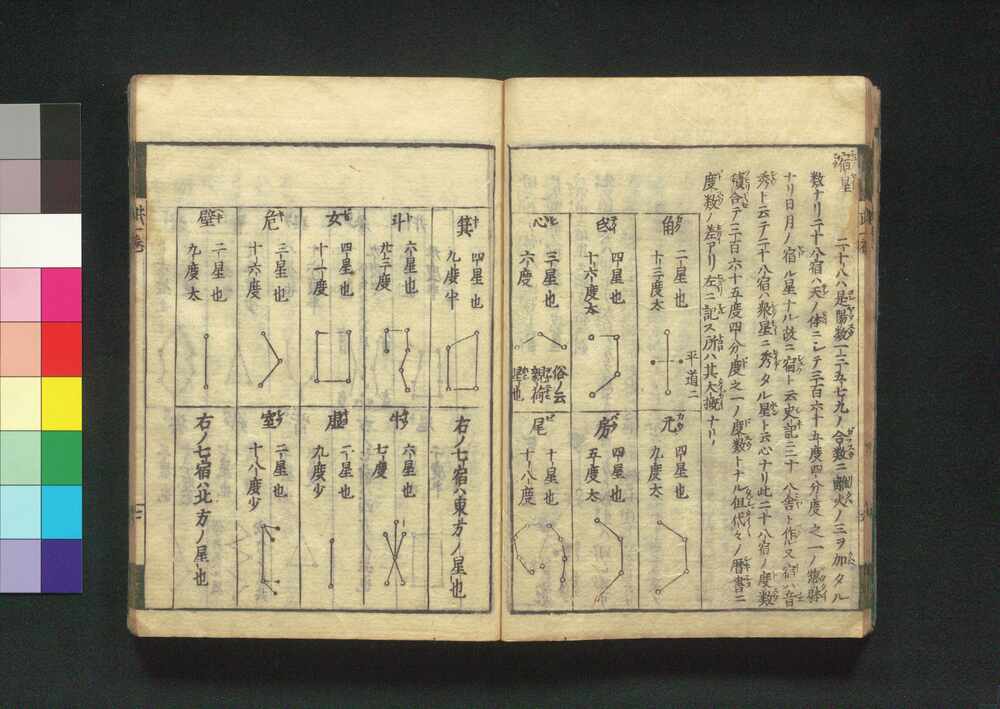 宿星 二十八ハ是陽數一三五七九ノ合数ニ離火ノ三ヲ加タル
数ナリ二十八宿ハ天ノ体ニシテ三百六十五度四分度之一ノ惣躰
ナリ日月ノ宿ル星ナル故ニ宿ト云史記ニ二十八舎ト作ル又宿ハ音
秀ト云テ二十八宿ハ衆星ニ秀タル星ト云心ナリ此二十八宿ノ度数
積合テ三百六十五度四分度之一ノ度数トナル但代々ノ暦書ニ
度数ノ差アリ左ニ記ス所ハ其大概ナリ
角
二星也
十二度太
平道二
亢
四星也
九度太
氐
四星也
十六度太
房
四星也
五度太
心
三星也
六度
俗ノ云
親荷
星也
尾
十星也
十八度
箕
四星也
九度半
右ノ七宿ハ東方ノ星也
斗
六星也
廿三度
牛
六星也
七度
女
四星也
十一度
虚
二星也
九度少
危
三星也
十六度
室
二星也
十八度少
壁
二星也
九度太
右ノ七宿ハ北方ノ星也